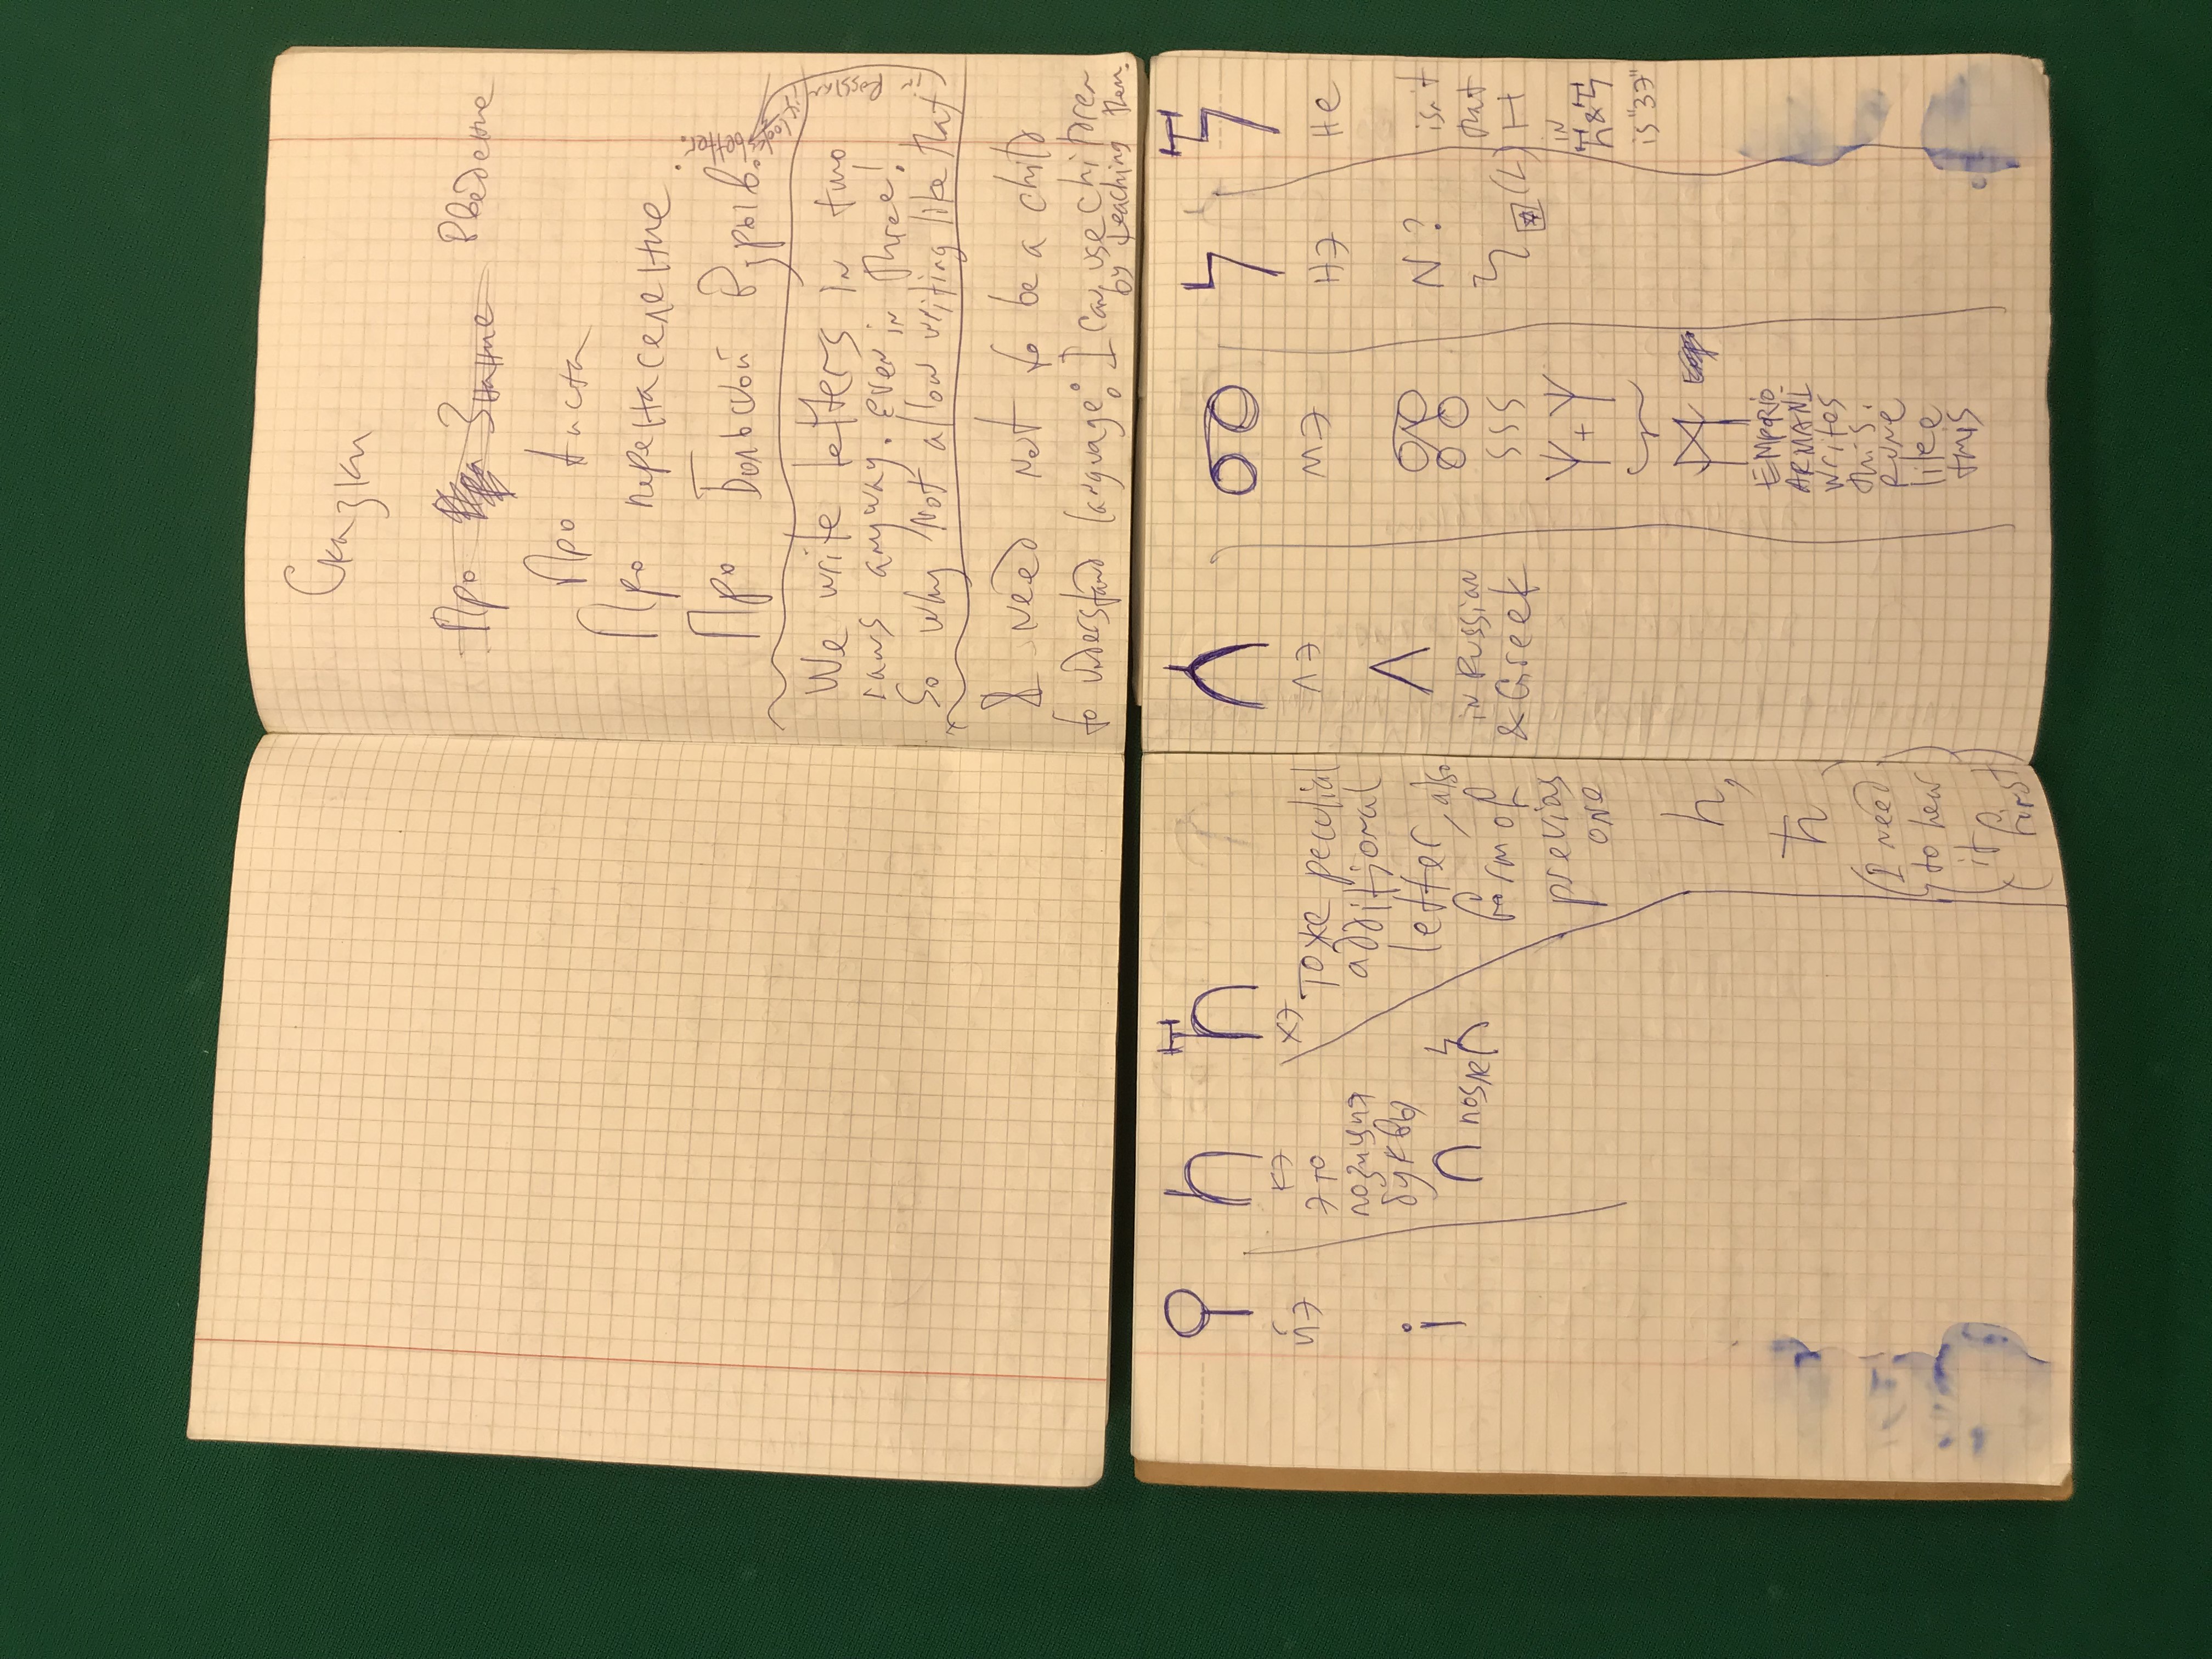 Сказки
Про Знание Введение
Про Аиста
Про перенаселение.
Про Большой Взрыв.
We write letters in two
raws anyway. even in three!
So why not allow writing like that
in Rossian it looks better.
I need not to be a child
to understand language: I can use children
by teaching them.
йэ
i
кэ
это
позиция
буквы
∩ posле
хэ
тоже peculial
additional
letter, also
form of
previos
one
h,
ħ
(I need
to hear
it
first)
лэ
Λ
in Russian
& Greek
мэ
SSS
Y + Y
EMPORIO
ARMANI
writes
this.
rune
like
this
нэ
N ?
(L)
не
isn't
that
H
in
&
is "зэ"